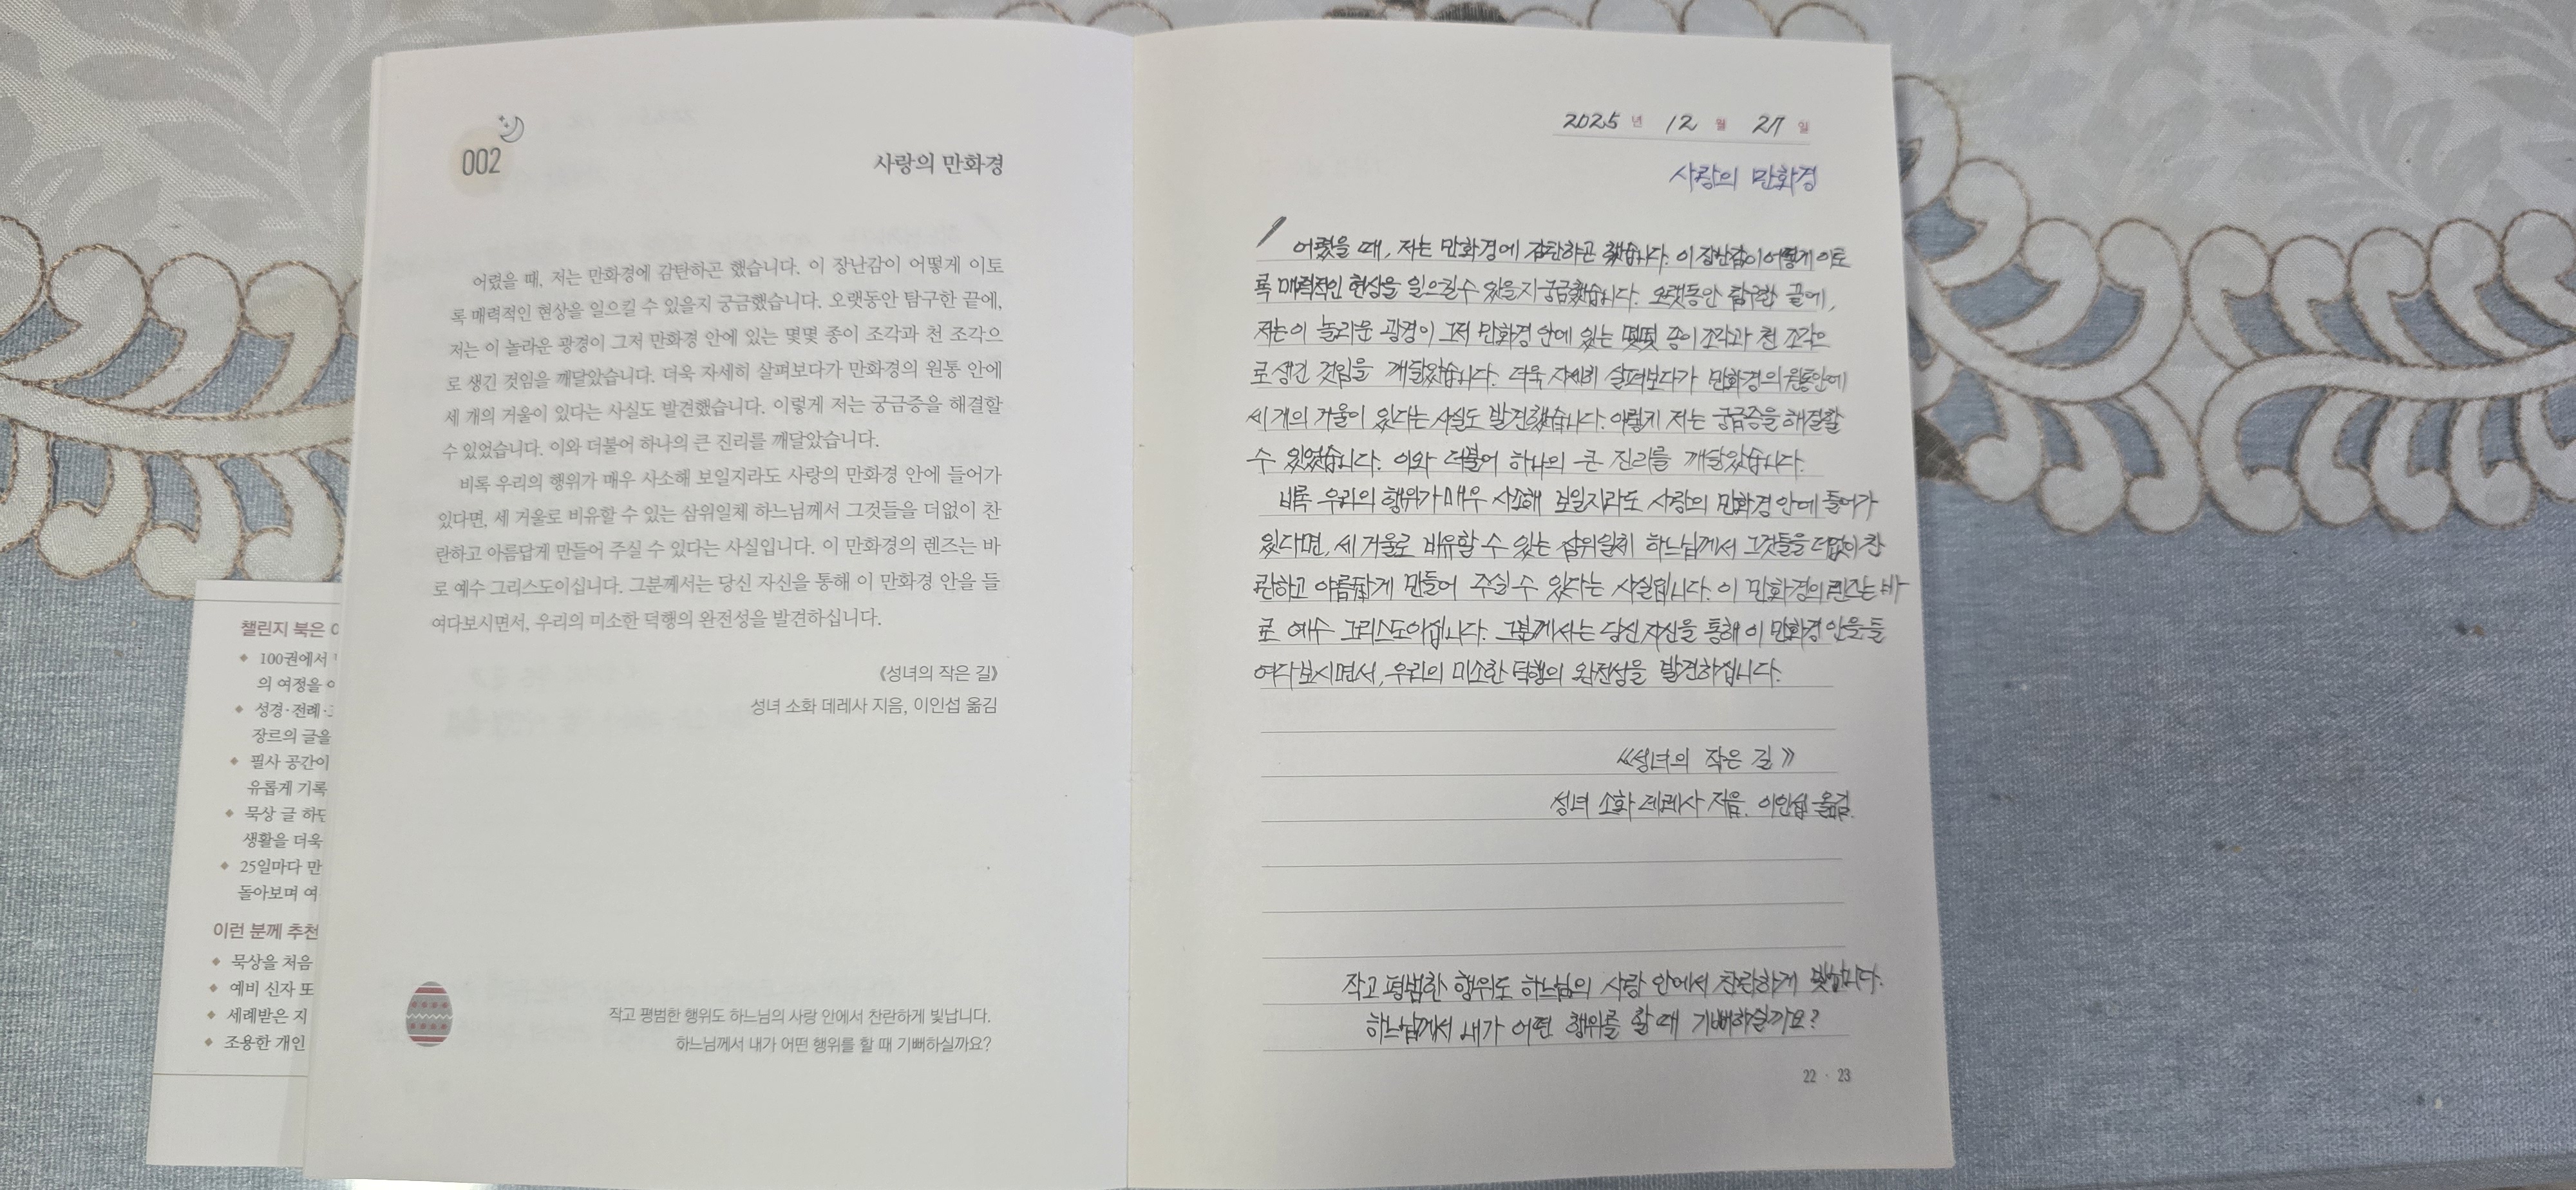 002
사랑의 만화경
어렸을 때, 저는 만화경에 감탄하곤 했습니다. 이 장난감이 어떻게 이토
록 매력적인 현상을 일으킬 수 있을지 궁금했습니다. 오랫동안 탐구한 끝에,
저는 이 놀라운 광경이 그저 만화경 안에 있는 몇몇 종이 조각과 천 조각으
로 생긴 것임을 깨달았습니다. 더욱 자세히 살펴보다가 만화경의 원통 안에
세 개의 거울이 있다는 사실도 발견했습니다. 이렇게 저는 궁금증을 해결할
수 있었습니다. 이와 더불어 하나의 큰 진리를 깨달았습니다.
비록 우리의 행위가 매우 사소해 보일지라도 사랑의 만화경 안에 들어가
있다면, 세 거울로 비유할 수 있는 삼위일체 하느님께서 그것들을 더없이 찬
란하고 아름답게 만들어 주실 수 있다는 사실입니다. 이 만화경의 렌즈는 바
로 예수 그리스도이십니다. 그분께서는 당신 자신을 통해 이 만화경 안을 들
여다보시면서, 우리의 미소한 덕행의 완전성을 발견하십니다.
《성녀의 작은 길》
성녀 소화 데레사 지음, 이인섭 옮김
작고 평범한 행위도 하느님의 사랑 안에서 찬란하게 빛납니다.
하느님께서 내가 어떤 행위를 할 때 기뻐하실까요?
챌린지 북은
100권에서
의 여정을
성경·전례·
장르의 글을
필사 공간이
유롭게 기록
묵상 글 하단
생활을 더욱
25일마다 만
돌아보며 여
이런 분께 추천
묵상을 처음
예비 신자 또
세례받은 지
조용한 개인
2025 년 12 월 27 일
사랑의 만화경
어렸을 때, 저는 만화경에 감탄하곤 했습니다. 이 장난감이 어떻게 이토
록 매력적인 현상을 일으킬 수 있을지 궁금했습니다. 오랫동안 탐구한 끝에,
저는 이 놀라운 광경이 그저 만화경 안에 있는 몇몇 종이 조각과 천 조각으
로 생긴 것임을 깨달았습니다. 더욱 자세히 살펴보다가 만화경의 원통안에
세 개의 거울이 있다는 사실도 발견했습니다. 이렇게 저는 궁금증을 해결할
수 있었습니다. 이와 더불어 하나의 큰 진리를 깨달았습니다.
비록 우리의 행위가 매우 사소해 보일지라도 사랑의 만화경 안에 들어가
있다면, 세 거울로 비유할 수 있는 삼위일체 하느님께서 그것들을 더없이 찬
란하고 아름답게 만들어 주실 수 있다는 사실입니다. 이 만화경의 렌즈는 바
로 예수 그리스도이십니다. 그분께서는 당신 자신을 통해 이 만화경 안을 들
여다보시면서, 우리의 미소한 덕행의 완전성을 발견하십니다.
《성녀의 작은 길》
성녀 소화 데레사 지음. 이인섭 옮김.
작고 평범한 행위도 하느님의 사랑 안에서 찬란하게 빛납니다.
하느님께서 내가 어떤 행위를 할 때 기뻐하실까요?
22 · 23